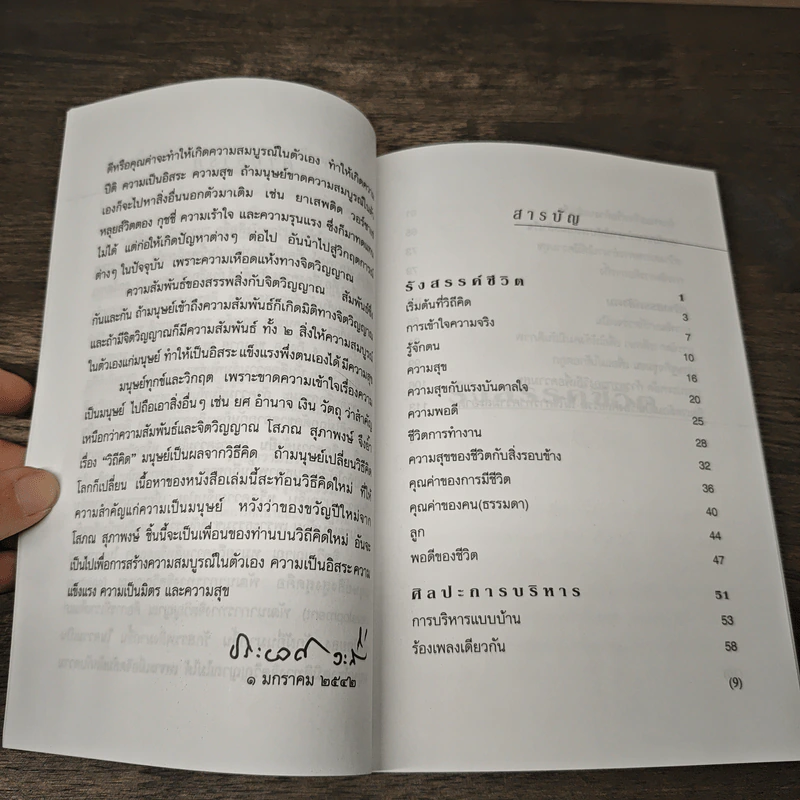 ดีหรือคุณค่าจะทำให้เกิดความสมบูรณ์ในตัวเอง ทำให้เกิดความ
ปีติ ความเป็นอิสระ ความสุข ถ้ามนุษย์ขาดความสมบูรณ์ในตัว
เองก็จะไปหาสิ่งอื่นนอกตัวมาเติม เช่น ยาเสพติด
หลุยส์วิตตอง กุชชี่ ความเร้าใจ และความรุนแรง ซึ่งก็มาทดแทน
ไม่ได้ แต่ก่อให้เกิดปัญหาต่างๆ ต่อไป อันนำไปสู่วิกฤตการณ์
ต่างๆ ในปัจจุบัน เพราะความเหือดแห้งทางจิตวิญญาณ
ความสัมพันธ์ของสรรพสิ่งกับจิตวิญญาณ สัมพันธ์ซึ่ง
กันและกัน ถ้ามนุษย์เข้าถึงความสัมพันธ์ก็เกิดมิติทางจิตวิญญาณ
และถ้ามีจิตวิญญาณก็มีความสัมพันธ์ ทั้ง ๒ สิ่งให้ความสมบูรณ์
ในตัวเองแก่มนุษย์ ทำให้เป็นอิสระ แข็งแรงพึ่งตนเองได้ มีความสุข
มนุษย์ทุกข์และวิกฤต เพราะขาดความเข้าใจเรื่องความ
เป็นมนุษย์ ไปถือเอาสิ่งอื่นๆ เช่น ยศ อำนาจ เงิน วัตถุ ว่าสำคัญ
เหนือกว่าความสัมพันธ์และจิตวิญญาณ โสภณ สุภาพงษ์ จึงย้ำ
เรื่อง “วิถีคิด” มนุษย์เป็นผลจากวิธีคิด ถ้ามนุษย์เปลี่ยนวิธีคิด
โลกก็เปลี่ยน เนื้อหาของหนังสือเล่มนี้สะท้อนวิธีคิดใหม่ ที่ให้
ความสำคัญแก่ความเป็นมนุษย์ หวังว่าของขวัญปีใหม่จาก
โสภณ สุภาพงษ์ ชิ้นนี้จะเป็นเพื่อนของท่านบนวิถีคิดใหม่ อันจะ
เป็นไปเพื่อการสร้างความสมบูรณ์ในตัวเอง ความเป็นอิสระ ความ
แข็งแรง ความเป็นมิตร และความสุข
๑ มกราคม ๒๕๔๒
สารบัญ
รังสรรค์ชีวิต 1
เริ่มต้นที่วิถีคิด 3
การเข้าใจความจริง 7
รู้จักตน 10
ความสุข 16
ความสุขกับแรงบันดาลใจ 20
ความพอดี 25
ชีวิตการทำงาน 28
ความสุขของชีวิตกับสิ่งรอบข้าง 32
คุณค่าของการมีชีวิต 36
คุณค่าของคน(ธรรมดา) 40
ลูก 44
พอดีของชีวิต 47
ศิลปะการบริหาร 51
การบริหารแบบบ้าน 53
ร้องเพลงเดียวกัน 58
(9)